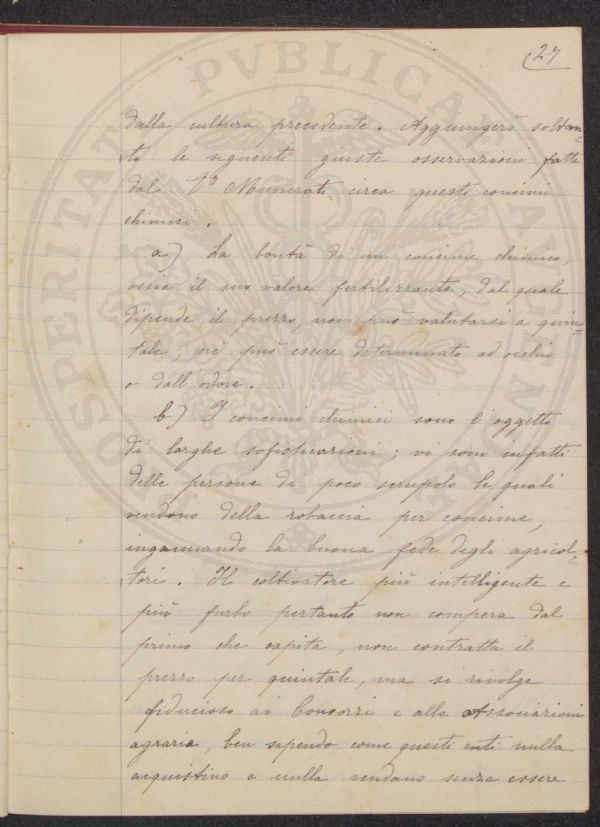 27
dalla cultura precedente. Aggiungerò soltan-
to le seguenti giuste osservazioni fatte
dal Munerati circa questi concimi
chimici.
a) La bontà di un concime chimico,
ossia il suo valore fertilizzante, dal quale
dipende il prezzo, non può valutarsi a quin-
tale, nè può essere determinato ad occhio
o dall'odore.
b) I concimi chimici sono l'oggetto
di larghe sofisticazioni; vi sono infatti
delle persone di poco scrupolo le quali
vendono della robaccia per concime,
ingannando la buona fede degli agricol-
tori. Il coltivatore più intelligente e
più furbo pertanto non compera dal
primo che capita, non contratta il
prezzo per quintale, ma si rivolge
fiducioso ai Consorzi e alle Associazioni
agrarie, ben sapendo come questi enti nulla
acquistino e nulla vendano senza essere
PROSPERITATI PVBLICAE AVGENDAE